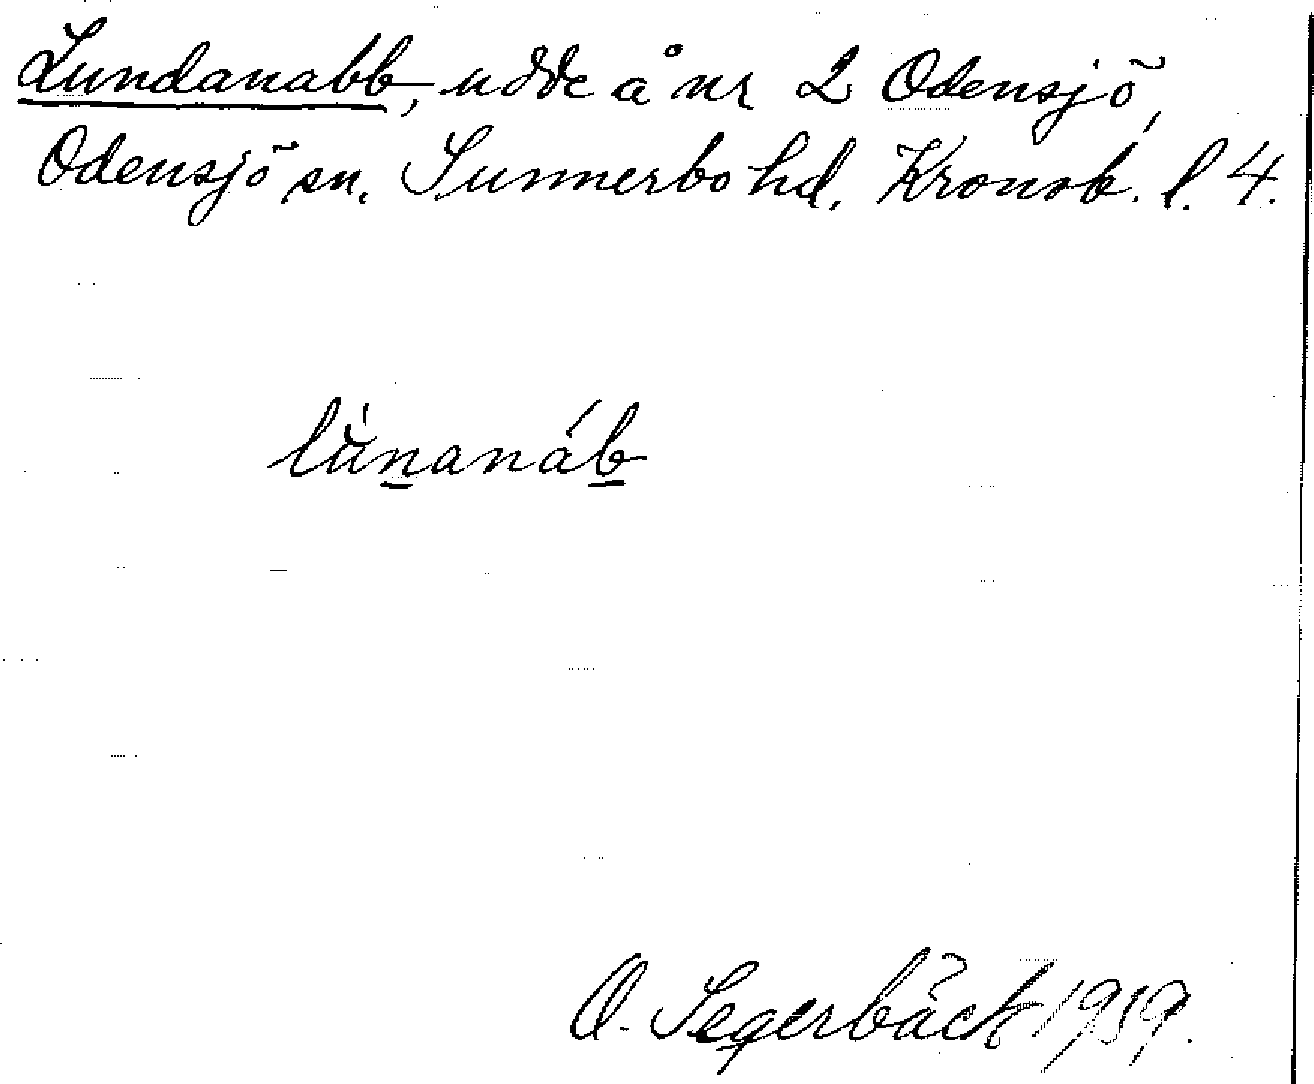 Lundanabb, udde å nr 2 Odensjö,
Odensjö sn. Sunnerbo hd. Kronob. l. 4.
lùnanáb
O. Segerbäck 1939.